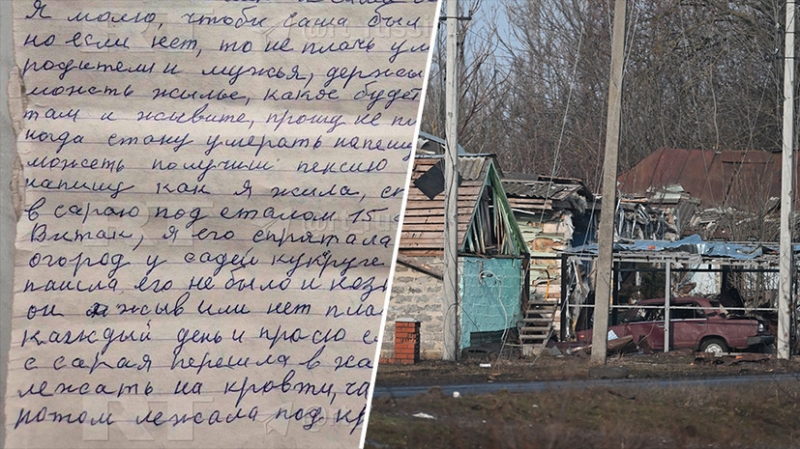 Я молю, чтобы Саша был
но если нет, то не плачь ум
родители и мужья, держы
можеть жилье, какое будет
там и жывите, прошу не пл
когда стану умерать напешу
можеть получиш пенсию
напишу как я жила, сп
в сараю под сталом 15
Витак, я его спрятала
огород у садей кукруге
пашла, его не было и коз
он жыв или нет пла
каждый день и просю
с сарая перешла в ха
лежать на кровти, ча
ротом лежала под кр